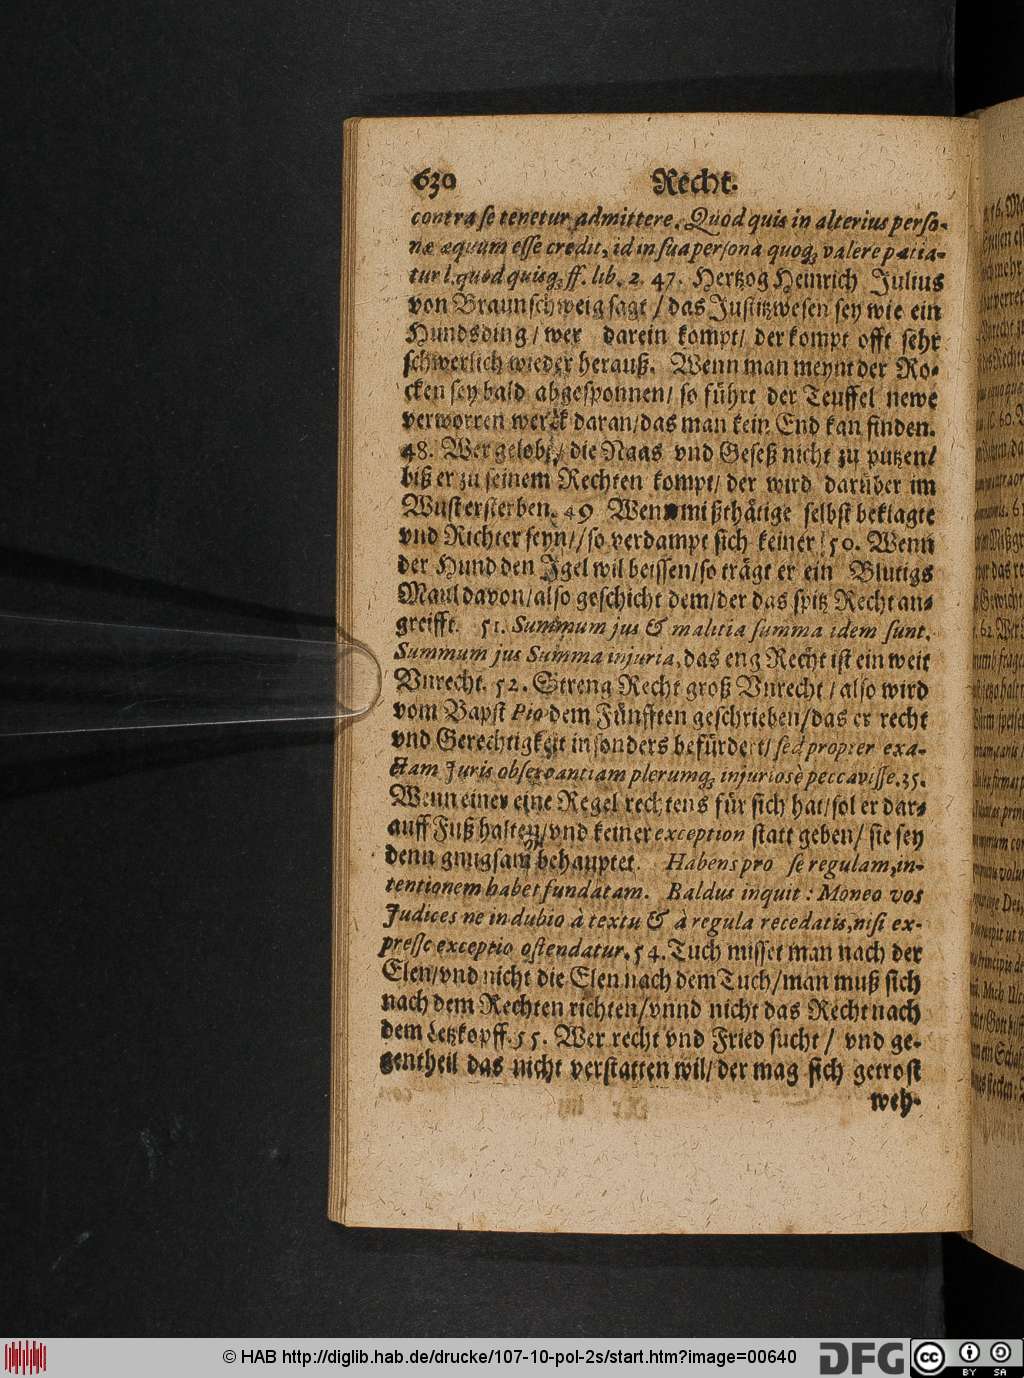 630 Recht.
contra se tenetur admittere. Quod quis in alterius perso-
næ æquum esse credit, id in sua persona quoq; valere patia-
tur l. quod quisq; ff. lib. 2. 47. Hertzog Heinrich Julius
von Braunschweig sagt / das Justitzwesen sey wie ein
Hundsding / wer darein kompt / der kompt offt sehr
schwerlich wieder herauß. Wenn man meynt der Ro-
cken sey bald abgesponnen / so führt der Teuffel newe
verworren werck daran / das man kein End kan finden.
48. Wer gelobt / die Naas vnd Geseß nicht zu putzen /
biß er zu seinem Rechten kompt / der wird darüber im
Wust ersterben. 49 Wenn mißthätige selbst beklagte
vnd Richter seyn / so verdampt sich keiner / 50. Wenn
der Hund den Igel wil beissen / so trägt er ein Blutigs
Maul davon / also geschicht dem / der das spitz Recht an-
greifft. 51. Summum jus & malitia summa idem sunt.
Summum jus Summa injuria, das eng Recht ist ein weit
Vnrecht. 52. Streng Recht groß Vnrecht / also wird
vom Bapst Pio dem Fünfften geschrieben / das er recht
vnd Gerechtigkeit insonders befürdert / sed propter exa-
ctam Juris observantiam plerumq; injuriosè peccavisse. 35.
Wenn einer eine Regel rechtens für sich hat / sol er dar-
auff Fuß halten / vnd keiner exception statt geben / sie sey
denn gnugsam behauptet. Habens pro se regulam, in-
tentionem habet fundatam. Baldus inquit : Moneo vos
Judices ne in dubio à textu & à regula recedatis, nisi ex-
presse exceptio ostendatur. 54. Tuch misset man nach der
Elen / vnd nicht die Elen nach dem Tuch / man muß sich
nach dem Rechten richten / vnnd nicht das Recht nach
dem Letzkopff. 55. Wer recht vnd Fried sucht / vnd ge-
gentheil das nicht verstatten wil / der mag sich getrost
weh-
© HAB http://diglib.hab.de/drucke/107-10-pol-2s/start.htm?image=00640
DFG
cc BY SA